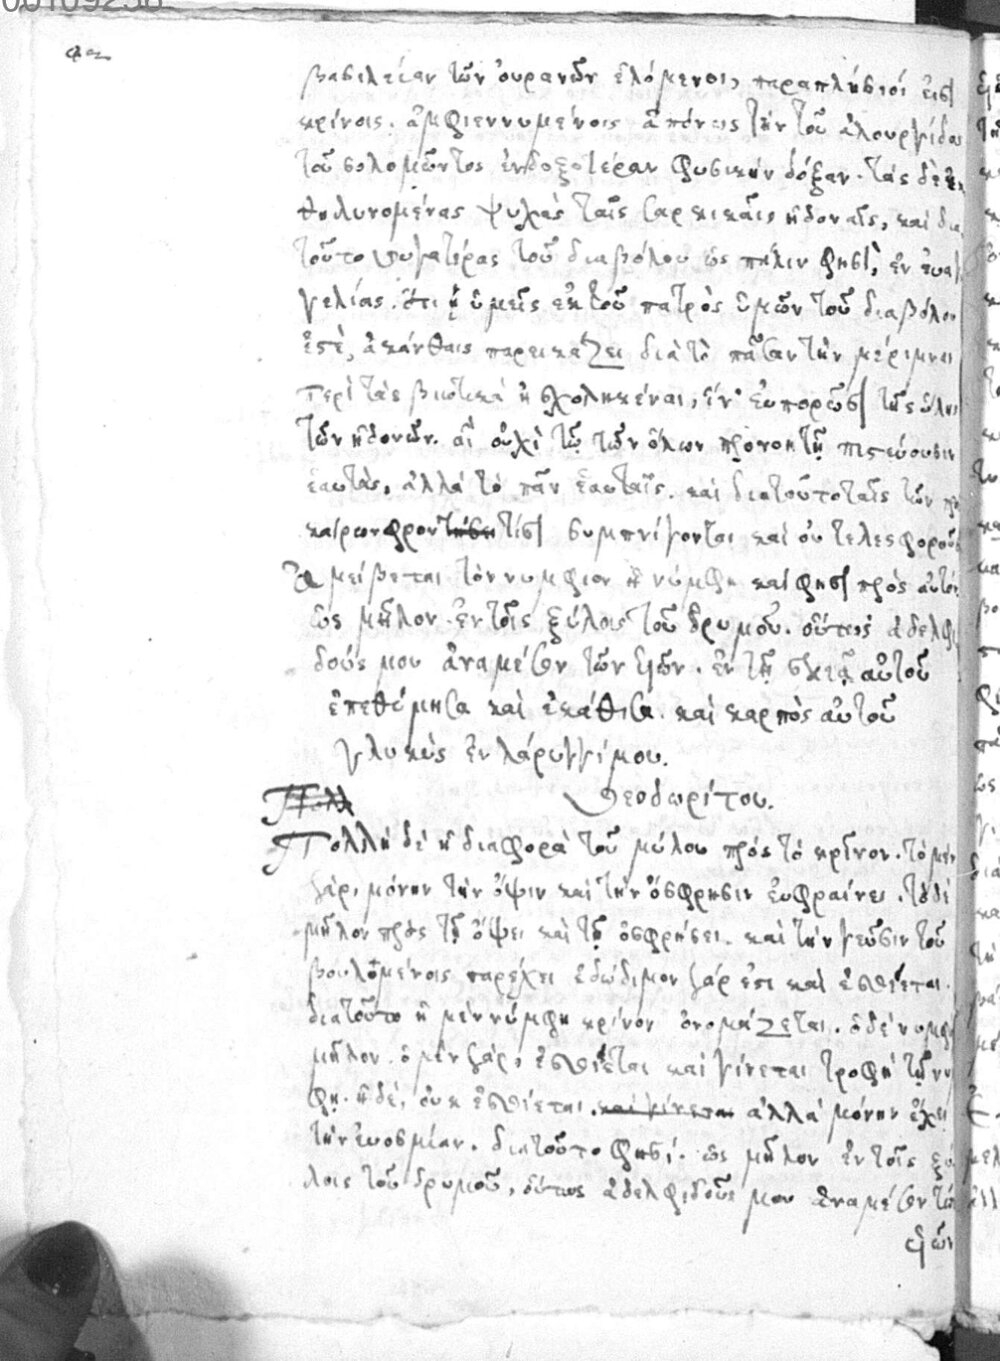 βασιλείαν τῶν οὐρανῶν ἑλόμενοι, παραπλήσιοί εἰσι
κρίνοις. ἀμφιεννυμένοις ἀπόνως τὴν τοῦ ἁλουργίδος
τοῦ σολομῶντος ἐνδοξοτέραν φυσικὴν δόξαν. τὰς δὲ ἐκ
θηλυνομένας ψυχὰς ταῖς σαρκικαῖς ἡδοναῖς, καὶ δια
τοῦτο θυγατέρας τοῦ διαβόλου ὡς πάλιν φησὶ, ἐν ευαγ
γελίοις. ὅτι ὑμεῖς ἐκ τοῦ πατρὸς ὑμῶν τοῦ διαβόλου
ἐστὲ, ἀκάνθαις παρεικάζει διὰ τὸ πᾶσαν τὴν μέριμναν
περὶ τὰς βιωτικὰ ἠσχοληκέναι, ἵν' εὐπορῶσι τῆς ὕλης
τῶν ἡδονῶν. αἳ οὐχὶ τῷ τῶν ὅλων προνοητῇ πιστεύουσιν
ἑαυτὰς, ἀλλὰ τὸ πᾶν ἑαυταῖς. καὶ διατοῦτο ταῖς τῶν προ
καίρων φροντίσι συμπνίγονται καὶ οὐ τελεσφοροῦσι
Ἀμείβεται τὸν νυμφίον ἡ νύμφη καί φησι πρὸς αὐτόν
ὡς μῆλον ἐν τοῖς ξύλοις τοῦ δρυμοῦ. οὕτως ἀδελφι
δούς μου ἀναμέσον τῶν υἱῶν. ἐν τῇ σκιᾷ αὐτοῦ
ἐπεθύμησα καὶ ἐκάθισα. καὶ καρπὸς αὐτοῦ
γλυκὺς ἐν λάρυγγί μου.
Πολλ Θεοδωρίτου.
Πολλὴ δὲ ἡ διαφορὰ τοῦ μύλου πρὸς τὸ κρῖνον. τὸ μὲν
γὰρ, μόνην τὴν ὄψιν καὶ τὴν ὄσφρησιν εὐφραίνει. τὸ δὲ
μῆλον πρὸς τῇ ὄψει καὶ τῇ ὀσφρήσει. καὶ τὴν γεῦσιν τοῦ
βουλομένοις παρέχει ἐδώδιμον γάρ ἐστι καὶ ἐσθίεται.
διατοῦτο ἡ μὲν νύμφη κρίνον ὀνομάζεται. ὁ δὲ νυμφί
μῆλον. ὁ μὲν γὰρ, ἐσθίεται καὶ γίνεται τροφὴ τῇ νυ
φῃ. ἡ δὲ, οὐκ ἐσθίεται. καὶ γίνεται ἀλλὰ μόνην ἔχει
τὴν εὐοσμίαν. διατοῦτο φησί. ὡς μῆλον ἐν τοῖς ξύ
λοις τοῦ δρυμοῦ, οὕτως ἀδελφιδοῦς μου ἀναμέσον τῶν
υἱῶν